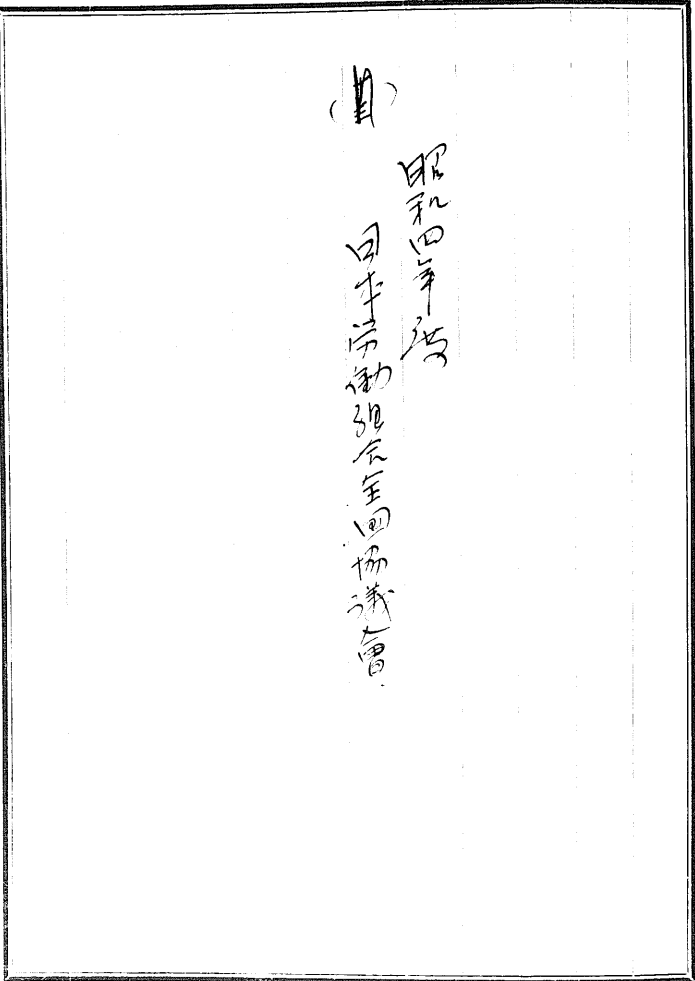 昭和四年度
日本労働組合全国協議會